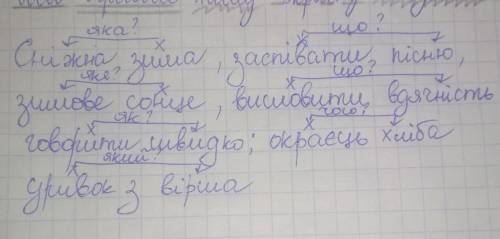 яка? що?
Сніжна зима, заспівати пісню,
яке? що?
зимове сонце, висловити вдячність
як? чого?
говорити швидко; окраєць хліба
який?
уривок з вірша